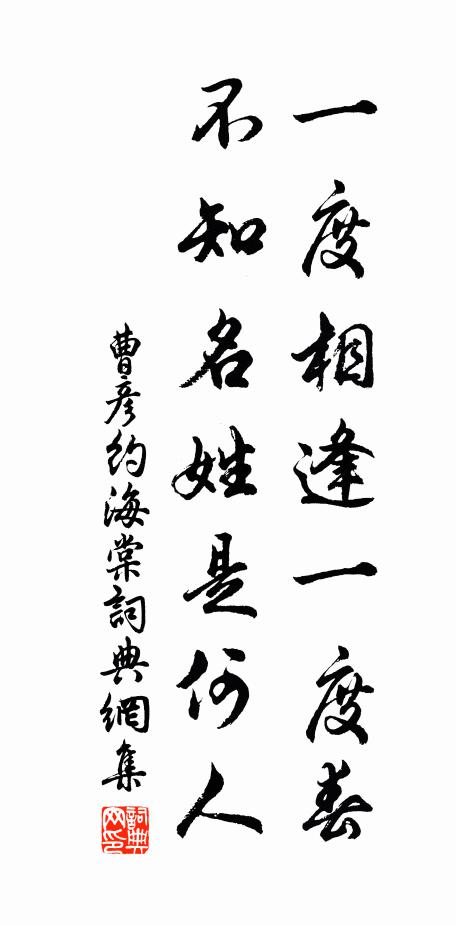 一度相逢一度春
不知名姓是何人
曹彥約海棠詞典網集
詞典網印